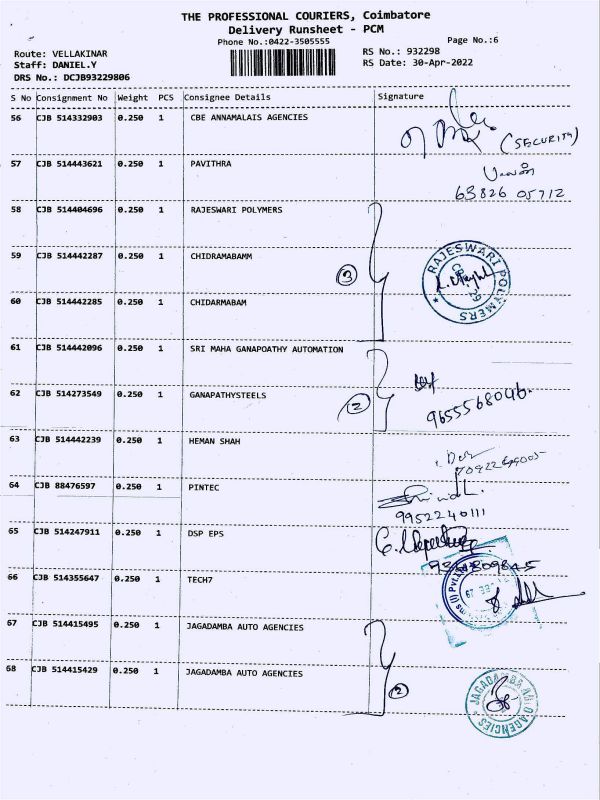 THE PROFESSIONAL COURIERS, Coimbatore
Delivery Runsheet - PCM
Phone No.:0422-3505555 Page No.:6
Route: VELLAKINAR RS No.: 932298
Staff: DANIEL.Y RS Date: 30-Apr-2022
DRS No.: DCJB93229806
S No Consignment No Weight PCS Consignee Details Signature
56 CJB 514332903 0.250 1 CBE ANNAMALAIS AGENCIES
(SECURITY)
57 CJB 514443621 0.250 1 PAVITHRA
63826 05712
58 CJB 514404696 0.250 1 RAJESWARI POLYMERS
59 CJB 514442287 0.250 1 CHIDRAMABAMM
3
RAJESWARI POLYMERS
60 CJB 514442285 0.250 1 CHIDARMABAM
61 CJB 514442096 0.250 1 SRI MAHA GANAPOATHY AUTOMATION
62 CJB 514273549 0.250 1 GANAPATHYSTEELS
2 9655568046.
63 CJB 514442239 0.250 1 HEMAN SHAH
64 CJB 88476597 0.250 1 PINTEC
9952240111
65 CJB 514247911 0.250 1 DSP EPS
66 CJB 514355647 0.250 1 TECH7
67 CJB 514415495 0.250 1 JAGADAMBA AUTO AGENCIES
68 CJB 514415429 0.250 1 JAGADAMBA AUTO AGENCIES
2
JAGADAMBA AUTO AGENCIES